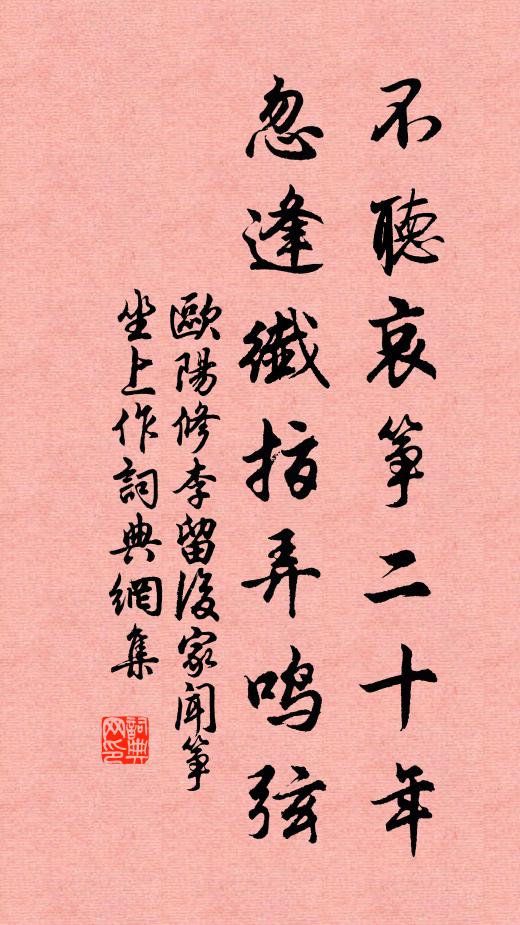 不聽哀箏二十年
忽逢纖指弄鸣弦
歐陽修李留後家聞箏
坐上作詞典網集
詞典网印